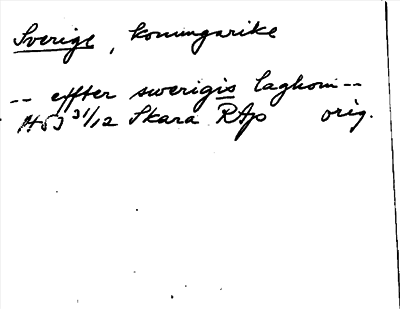 Sverige, konungarike
-- effter swerigis laghom --
1453 31/12 Skara RAp orig.